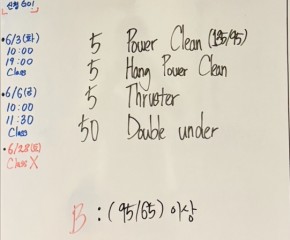 신청 GO!
•6/3(화)
10:00
19:00
Class
•6/6(금)
10:00
11:30
Class
•6/28(토)
Class X
5 Power Clean (135/95)
5 Hang Power Clean
5 Thruster
50 Double under
B : (95/65) 이상